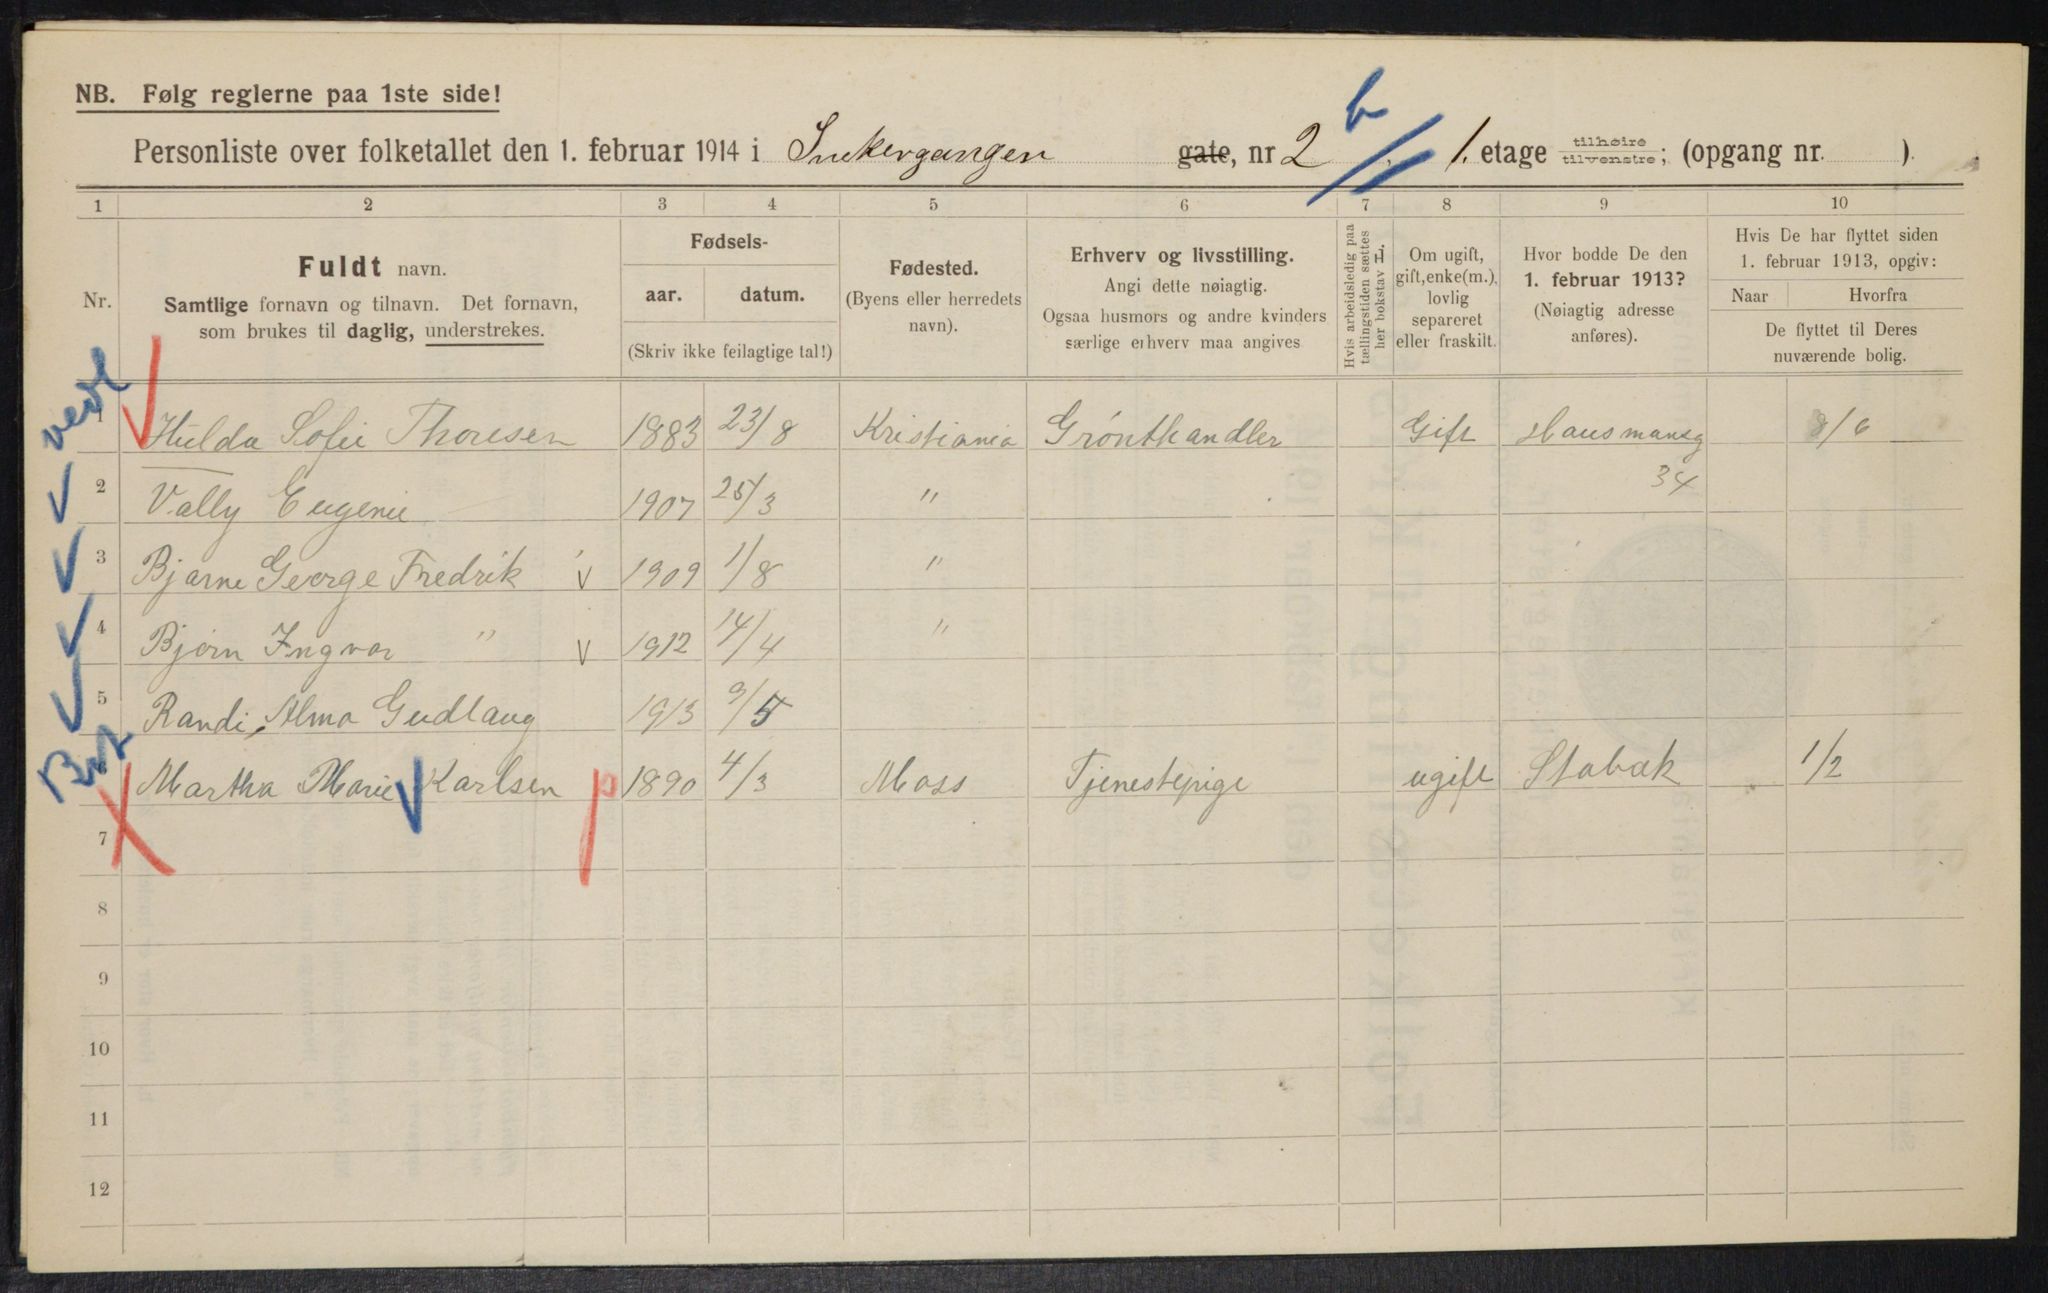 NB. Følg reglerne paa 1ste side!
Personliste over folketallet den 1. februar 1914 i Snekergangen gate, nr 2 b 1. etage tilhøire tilvenstre; (opgang nr. ).
1 2 3 4 5 6 7 8 9 10
Nr.
Fuldt navn.
Samtlige fornavn og tilnavn. Det fornavn,
som brukes til daglig, understrekes.
Fødsels-
aar. datum.
(Skriv ikke feilagtige tal!)
Fødested.
(Byens eller herredets
navn).
Erhverv og livsstilling.
Angi dette nøiagtig.
Ogsaa husmors og andre kvinders
særlige erhverv maa angives
Hvis arbeidsledig paa
tællingstiden sættes
her bokstav L.
Om ugift,
gift, enke(m.),
lovlig
separeret
eller fraskilt.
Hvor bodde De den
1. februar 1913?
(Nøiagtig adresse
anføres).
Hvis De har flyttet siden
1. februar 1913, opgiv:
Naar Hvorfra
De flyttet til Deres
nuværende bolig.
1 Hulda Sofie Thoresen 1883 23/8 Kristiania Grønthandler Gift Hausmansg 8/6
34
2 Vally Eugenie 1907 25/3 "
3 Bjarne George Fredrik v 1909 1/8 "
4 Bjørn Ingvar " v 1912 14/4 "
5 Randi, Alma Gudlaug 1913 9/5
6 Martha Marie Karlsen p 1890 4/3 Moss Tjenestepige ugift Stabæk 1/2
7
8
9
10
11
12